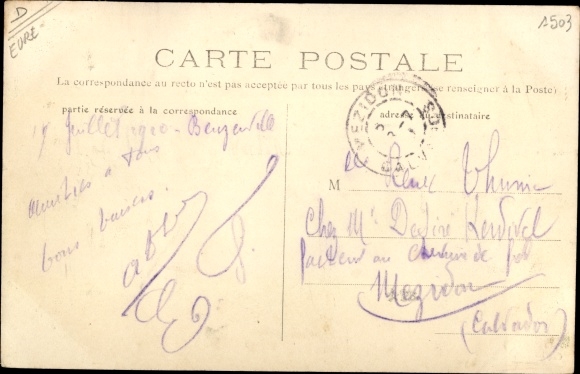 D
EURE
1503
CARTE POSTALE
La correspondance au recto n'est pas acceptée par tous les pays étrangers (se renseigner à la Poste)
partie réservée à la correspondance
adresse du destinataire
Juillet 1910 - Beuzeville
Amitiés à tous
bons baisers
M René
Chez Mr Désiré
facteur au chemin de fer
Mezidon
(Calvados)